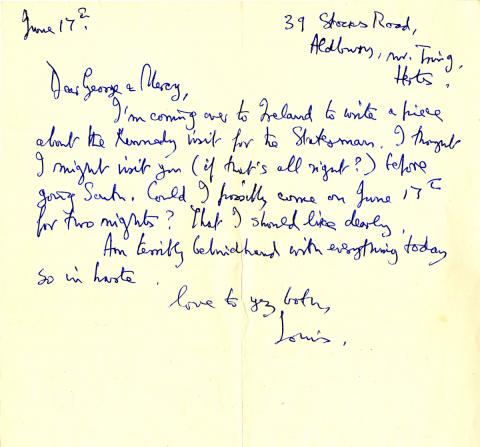 June 17th.
39 Stocks Road,
Aldbury, nr. Tring,
Herts.
Dear George & Mercy,
I'm coming over to Ireland to write a piece
about the Kennedy visit for the Statesman. I thought
I might visit you (if that's all right?) before
going South. Could I possibly come on June
for two nights? That I should like dearly.
Am terribly behindhand with everything today
so in haste.
love to yez both,
Louis.